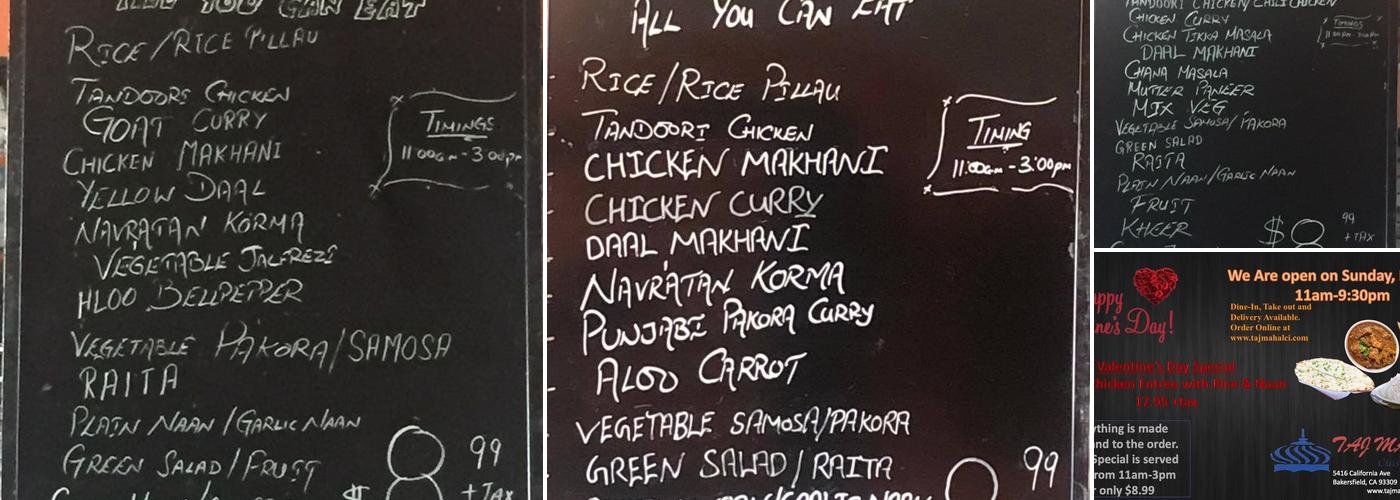 ALL YOU CAN EAT
RICE/RICE PILLAU
TANDOORI CHICKEN
GOAT CURRY
CHICKEN MAKHANI
YELLOW DAAL
NAVRATAN KORMA
VEGETABLE JALFREZI
ALOO BELLPEPPER
VEGETABLE PAKORA/SAMOSA
RAITA
PLAIN NAAN/GARLIC NAAN
GREEN SALAD/FRUIT
TIMINGS
11:00am-3:00pm
$
99
+TAX
ALL YOU CAN EAT
RICE/RICE PILLAU
TANDOORI CHICKEN
CHICKEN MAKHANI
CHICKEN CURRY
DAAL MAKHANI
NAVRATAN KORMA
PUNJABI PAKORA CURRY
ALOO CARROT
VEGETABLE SAMOSA/PAKORA
GREEN SALAD/RAITA
TIMING
11:00am-3:00pm
99
TANDOORI CHICKEN/CHILI CHICKEN
CHICKEN CURRY
CHICKEN TIKKA MASALA
DAAL MAKHANI
CHANA MASALA
MUTTER PANEER
MIX VEG
VEGETABLE SAMOSA/PAKORA
GREEN SALAD
RAITA
PLAIN NAAN/GARLIC NAAN
FRUIT
KHEER
TIMINGS
11:00AM-3:00PM
$8
99
+TAX
ppy
ne's Day!
We Are open on Sunday,
11am-9:30pm
Dine-In, Take out and
Delivery Available.
Order Online at
www.tajmahalci.com
Valentine's Day Special
hicken Entree with Rice & Naan
17.95 +tax
ything is made
nd to the order.
Special is served
rom 11am-3pm
only $8.99
TAJ MA
5416 California Ave
Bakersfield, CA 93309
www.tajm